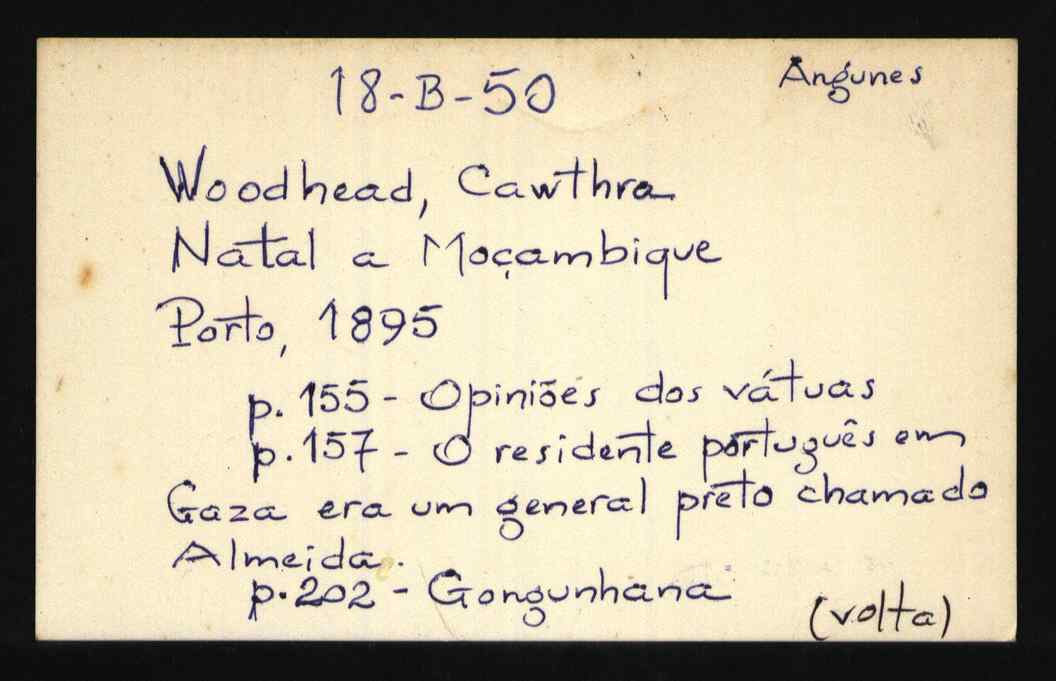 18-B-50
Angunes
Woodhead, Cawthra
Natal a Moçambique
Porto, 1895
p. 155 - Opiniões dos vátuas
p. 157 - O residente português em
Gaza era um general preto chamado
Almeida.
p. 202 - Gongunhana
(volta)